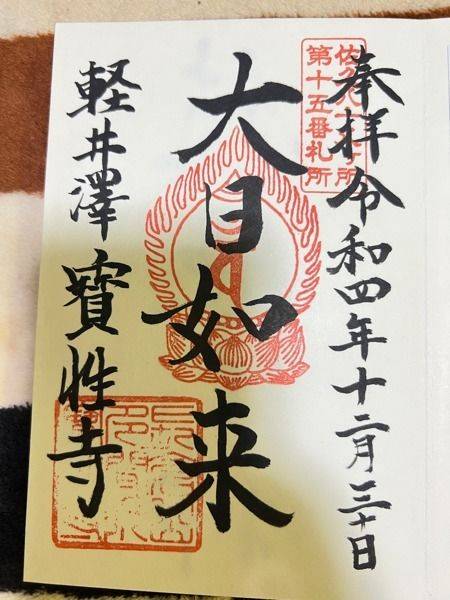 奉拝令和四年十二月三十日
佐久八十八ヶ所
第十五番札所
大日如来
軽井澤寶性寺